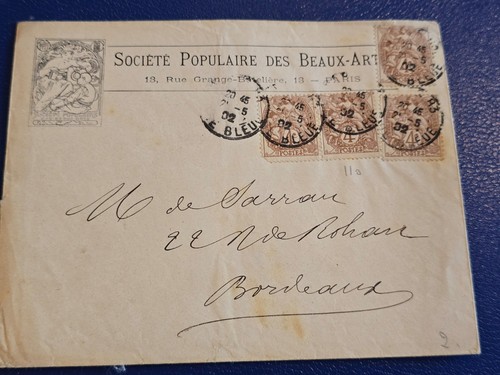 SOCIÉTÉ POPULAIRE DES BEAUX-ART
13, Rue Grange-Batelière, 13 — PARIS
20 45
2 -5
02
LE BLEUE
45
-5
02
BLEUE
4
POSTES
POSTES
110
M de Sarrau
22 R de Rohan
Bordeaux
2.